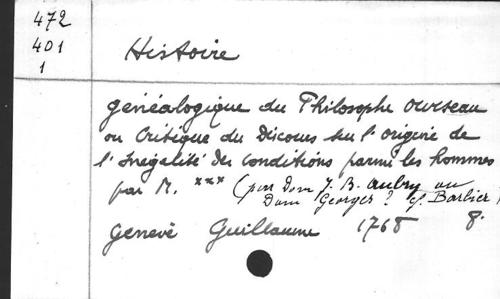 472
401
1
Histoire
généalogique du Philosophe ourseau
ou Critique du Discours sur l'origine de
l'Inégalité des conditions parmi les hommes
par M. *** (par Dom J. B. Aubry ou
Dom Georges ? cf. Barbier)
Genève Guillaume 1768 8.